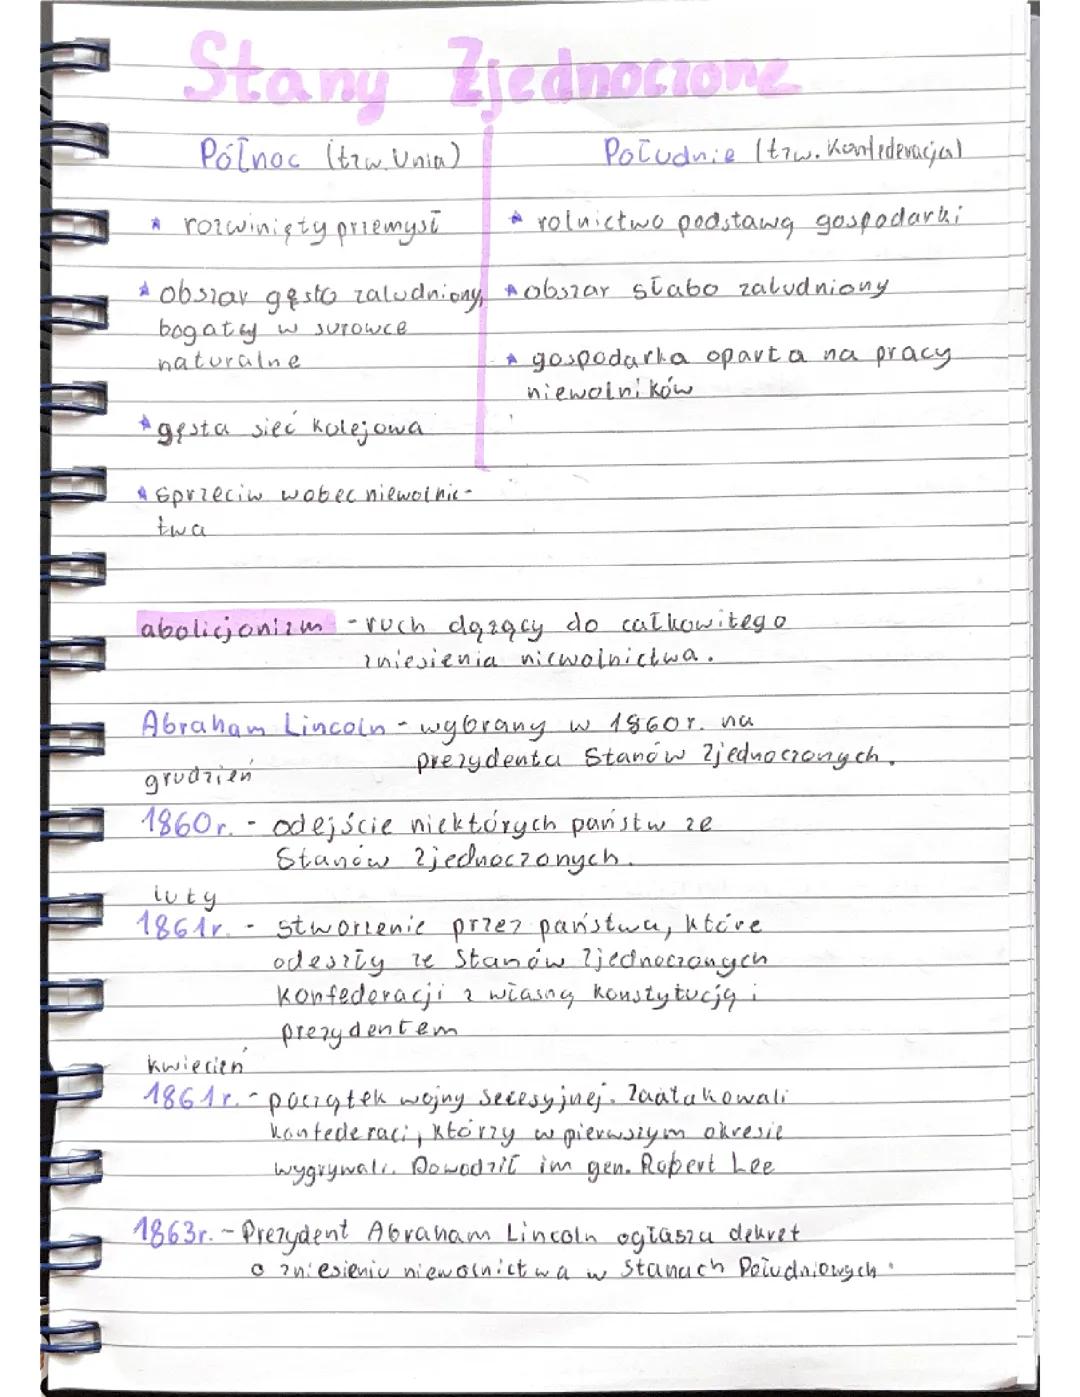 Stany Zjednoczone
Północ (tzw. Unia)
* rozwinięty przemysł
* obszar gęsto zaludniony,
bogaty w surowce
naturalne
* gęsta sieć kolejowa
* sprzeciw wobec niewolnic-
twa
Południe (tzw. Konfederacja)
* rolnictwo podstawą gospodarki
* obszar słabo zaludniony
* gospodarka oparta na pracy
niewolników
abolicjonizm - ruch dążący do całkowitego
zniesienia niewolnictwa.
Abraham Lincoln - wybrany w 1860r. na
prezydenta Stanów Zjednoczonych.
grudzień
1860r. - odejście niektórych państw ze
Stanów Zjednoczonych.
luty
1861r. - stworzenie przez państwa, które
odeszły ze Stanów Zjednoczonych
Konfederacji z własną konstytucją i
prezydentem
kwiecień
1861r. - początek wojny secesyjnej. Zaatakowali
konfederaci, którzy w pierwszym okresie
wygrywali. Dowodził im gen. Robert Lee
1863r. - Prezydent Abraham Lincoln ogłasza dekret
o zniesieniu niewolnictwa w Stanach Południowych.